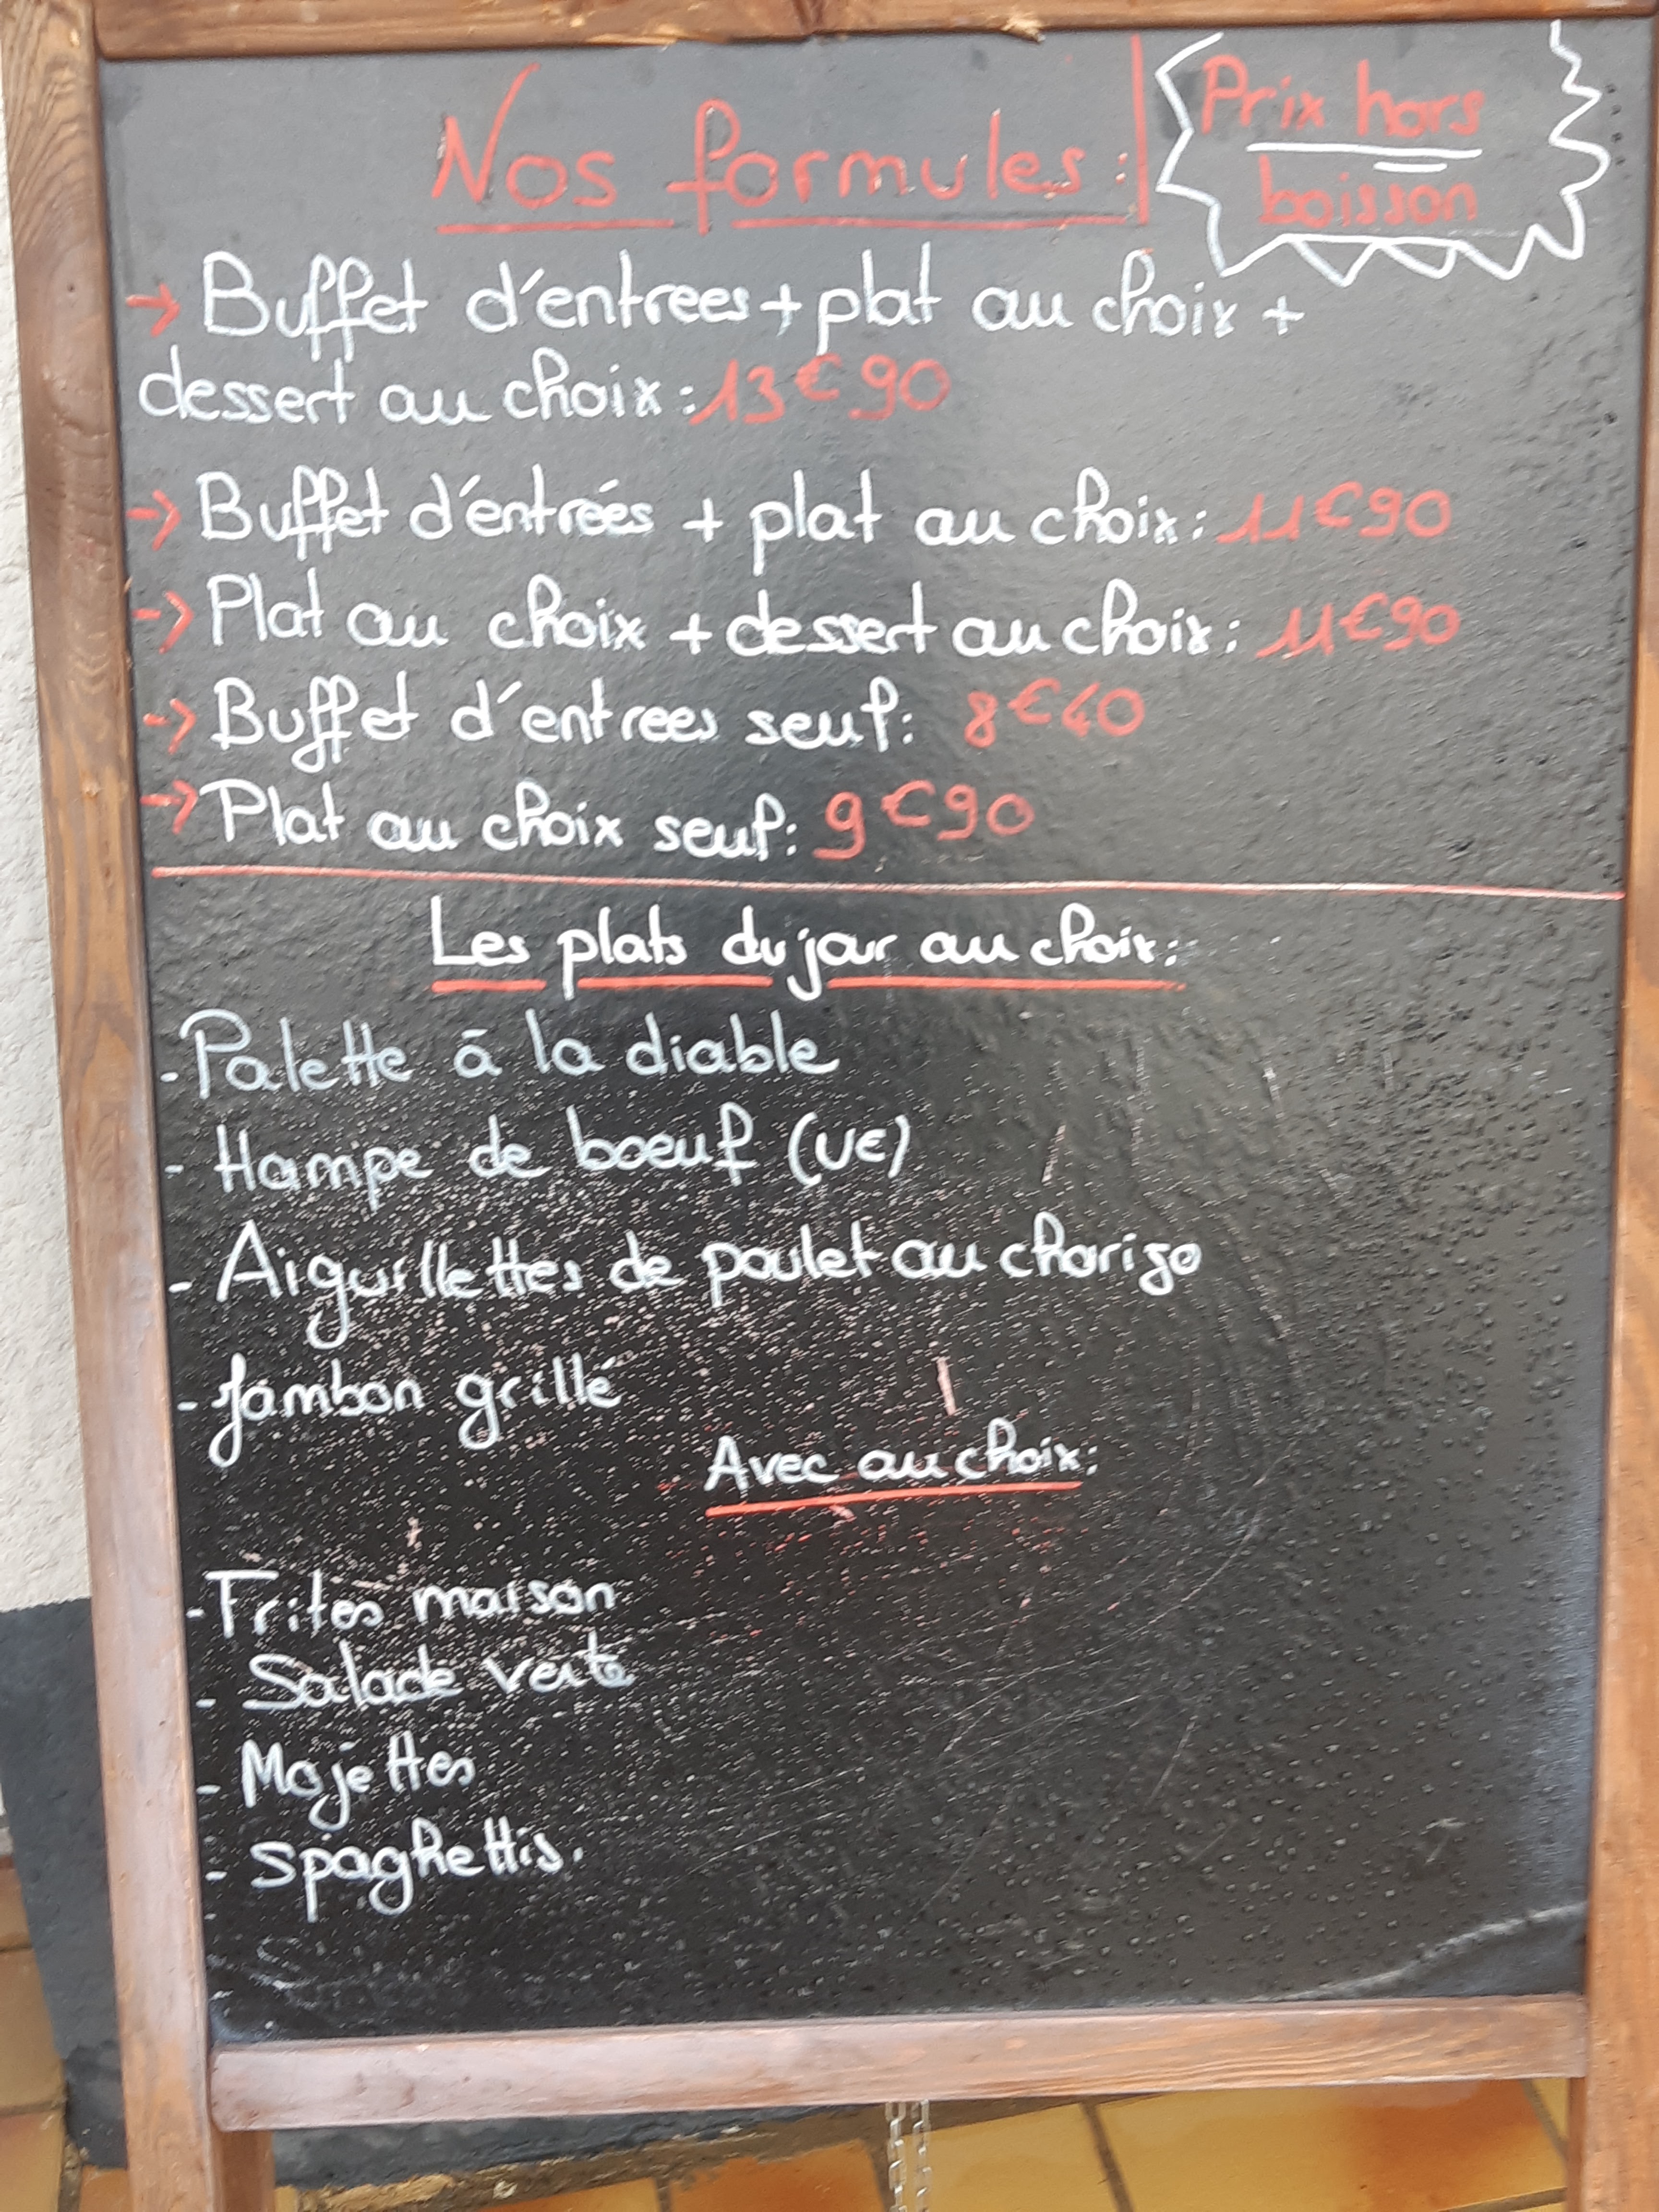 Nos formules:
Prix hors
boisson
→ Buffet d'entrees + plat au choix +
dessert au choix: 13€90
→ Buffet d'entrées + plat au choix: 11€90
→ Plat au choix + dessert au choix: 11€90
→ Buffet d'entrees seul: 8€40
→ Plat au choix seul: 9€90
Les plats du jour au choix:
- Palette à la diable
- Hampe de boeuf (UE)
- Aiguillettes de poulet au chorizo
- Jambon grillé
Avec au choix:
- Frites maison
- Salade verte
- Mojettes
- Spaghettis.